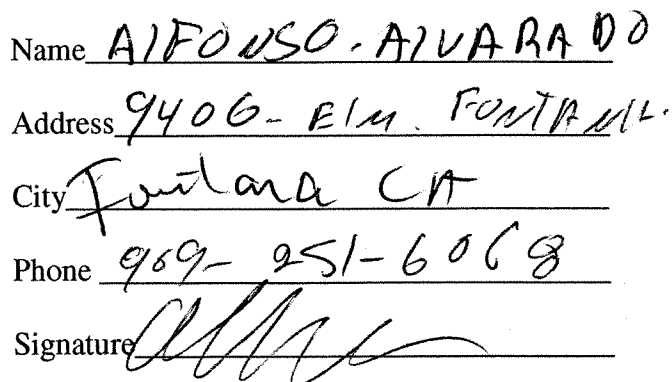 Name AlFONSO. AlVARADO
Address 9406- Elm. FONTANA.
City Fontana CA
Phone 909- 251-6068
Signature